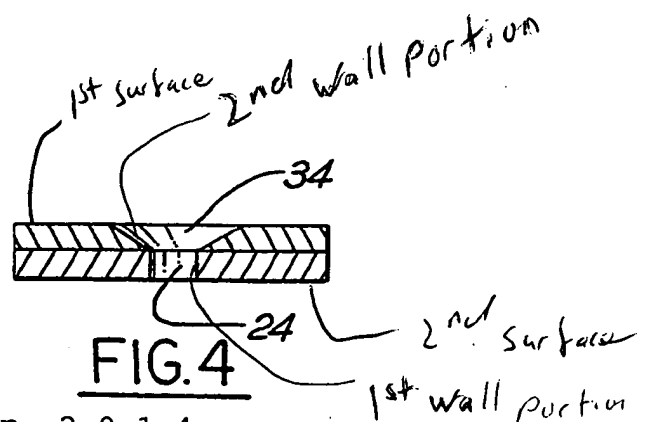 1st surface
2nd wall portion
34
24
2nd surface
FIG. 4
1st wall portion